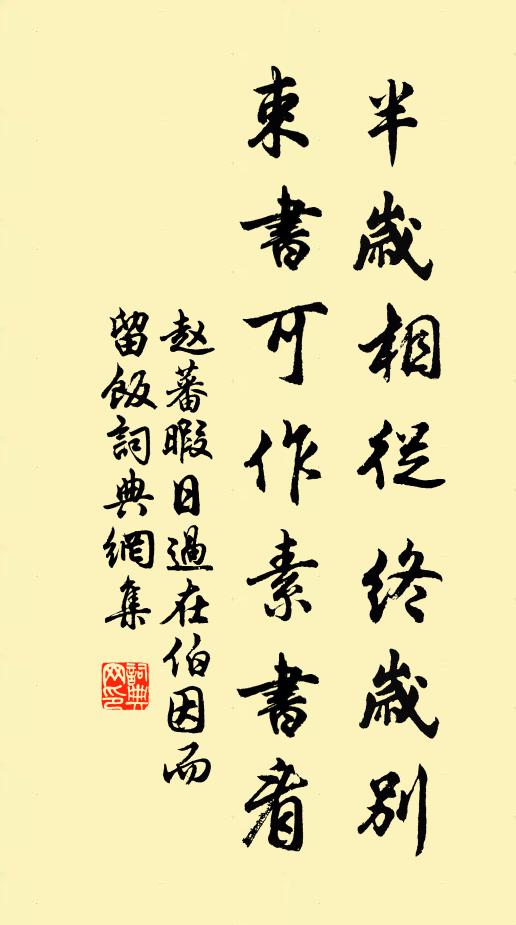 半歲相從終歲別
束書可作素書看
赵蕃暇日過在伯因而
留飯詞典網集
詞典网印